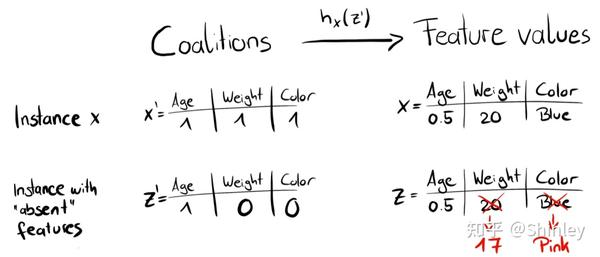 Coalitions hx(z') Feature values
Age Weight Color Age Weight Color
Instance x x'= 1 1 1 x= 0.5 20 Blue
Instance with
"absent"
features
Age Weight Color Age Weight Color
z'= 1 0 0 z= 0.5 20 Blue
17 Pink
知乎 @Shirley